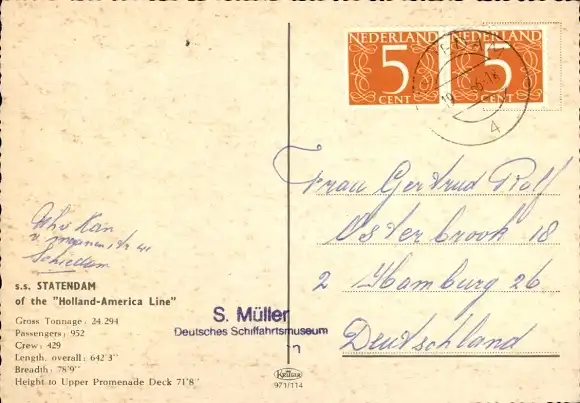 NEDERLAND
5
CENT
NEDERLAND
5
CENT
4
Frau Gertrud Rolf
Osterbrook 18
2 Hamburg 26
Deutschland
Schiedam
s.s. STATENDAM
of the "Holland-America Line"
Gross Tonnage: 24 294
Passengers: 952
Crew: 429
Length. overall: 642'3''
Breadth: 78'9''
Height to Upper Promenade Deck 71'8''
S. Müller
Deutsches Schiffahrtsmuseum
Krüger
971/114